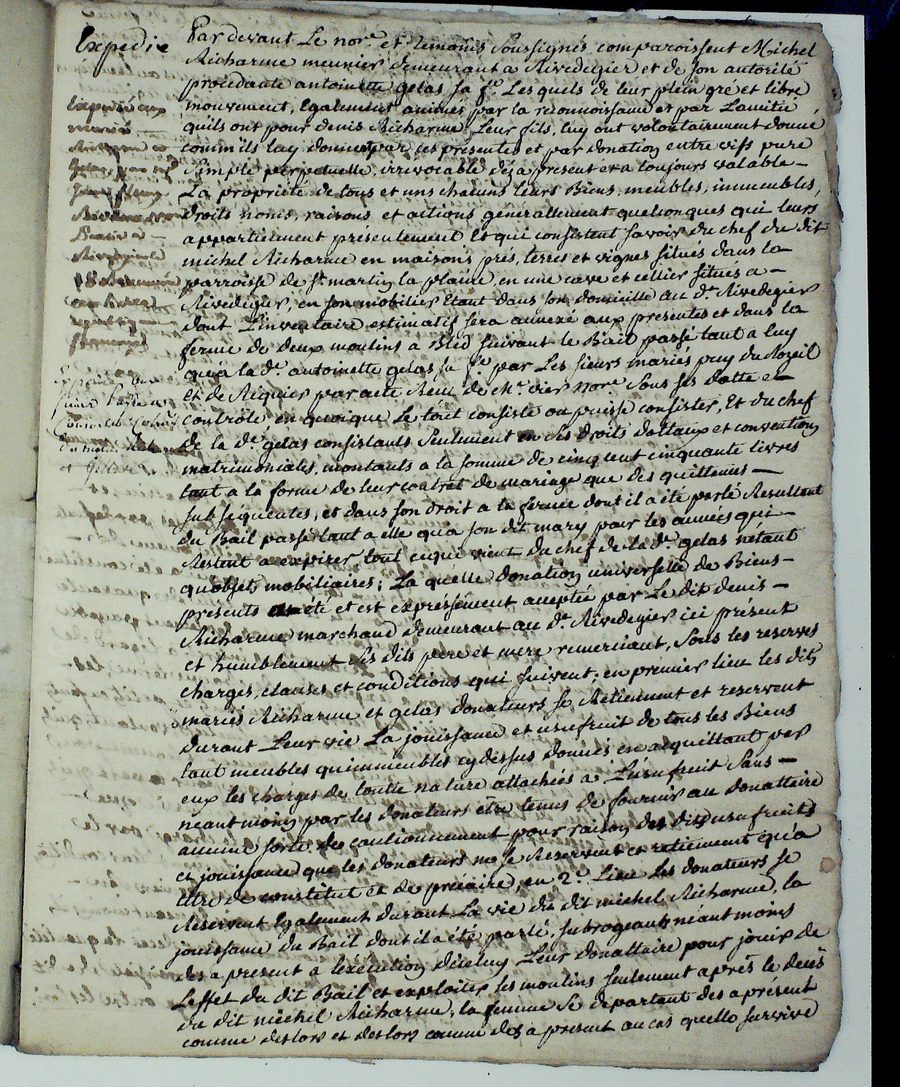 Expedié
Par devant Le no.re et temoins Soussignés, comparoissent Michel
Richarme meunier demeurant a Rivedegier et de son autorité
procedante antoinette gelas sa f.e Lesquels de leur plein gré et libre
mouvement, Egalement animés par la reconnoissance et par L'amitié
quils ont pour denis Richarme Leur fils, luy ont volontairement donné
comm'ils luy donnent par ces presentes et par donation entre vifs pure
Simple perpetuelle, irrevocable dés a present et a toujours valable –
La propriété de tous et uns chacuns leurs Biens, meubles, immeubles,
droits noms, raisons et actions generallement quelconques qui leurs
appartiennent présentement Et qui consistent savoir du chef du dit
michel Richarme en maisons prés, terres et vignes situés dans la
parroisse de S.t martin la plaine, en une cave et cellier situés a –
Rivedegier, en son mobilier Etant dans son domicille au d.t Rivedegier
dont L'inventaire estimatif sera annexé aux presentes et dans la
ferme de deux moulins a Bled suivant le Bail passé tant a luy
que a la d.e antoinette gelas sa f.e par Les sieurs mariés puy du Royil
et de Riquier par acte Reçu de M.e vier Nore. Sous ses datte et
controle, en quoique Le tout consiste ou puisse consister, Et du chef
de la d.e gelas consistants Seulement en ses droits dottaux et conventions
matrimoniales, montants a la somme de cinq cent cinquante livres
tant a la forme de leur contrat de mariage que des quittances –
subséquentes, et dans son droit a la ferme dont il a été parlé Resultant
du Bail passé tant a elle qu'a son dit mary pour les années qui –
Restent a expirer, tout ce qui vient du chef de la d.e gelas n'étant
qu'objets mobiliaires; La quelle donation universelle de Biens –
presents a été et est expressement acceptée par Le dit denis –
Richarme marchand demeurant au d.t Rivedegier ici présent
et humblement Ses dits pere et mere remerciant, Sous les reserves
charges, clauses et conditions qui suivent; en premier lieu les dits
mariés Richarme et gelas donateurs se Retiennent et reservent
durant Leur vie La jouissance et usufruit de tous les Biens
tant meubles qu'immeubles cydessus donnés en acquittant par
eux les charges de toutte nature attachées a L'usufruit Sans –
neantmoins par les donateurs etre tenus de fournir au donattaire
aucune sorte de cautionnement pour raison des dits usufruits
et jouissance que les donateurs ne se Reservent et retiennent qu'a
titre de constitut et de précaire, en 2.e Lieu Les donateurs se
Reservent Egalement durant La vie du dit michel Richarme, la
jouissance du Bail dont il a été parlé, subrogeants neantmoins
des a present a l'exécution d'iceluy Leur donattaire pour jouir de
L'effet du dit Bail et exploiter les moulins seulement après le decès
du dit michel Richarme, la femme Se departant des a present
comme deslors et deslors comme des a present au cas quelle survive